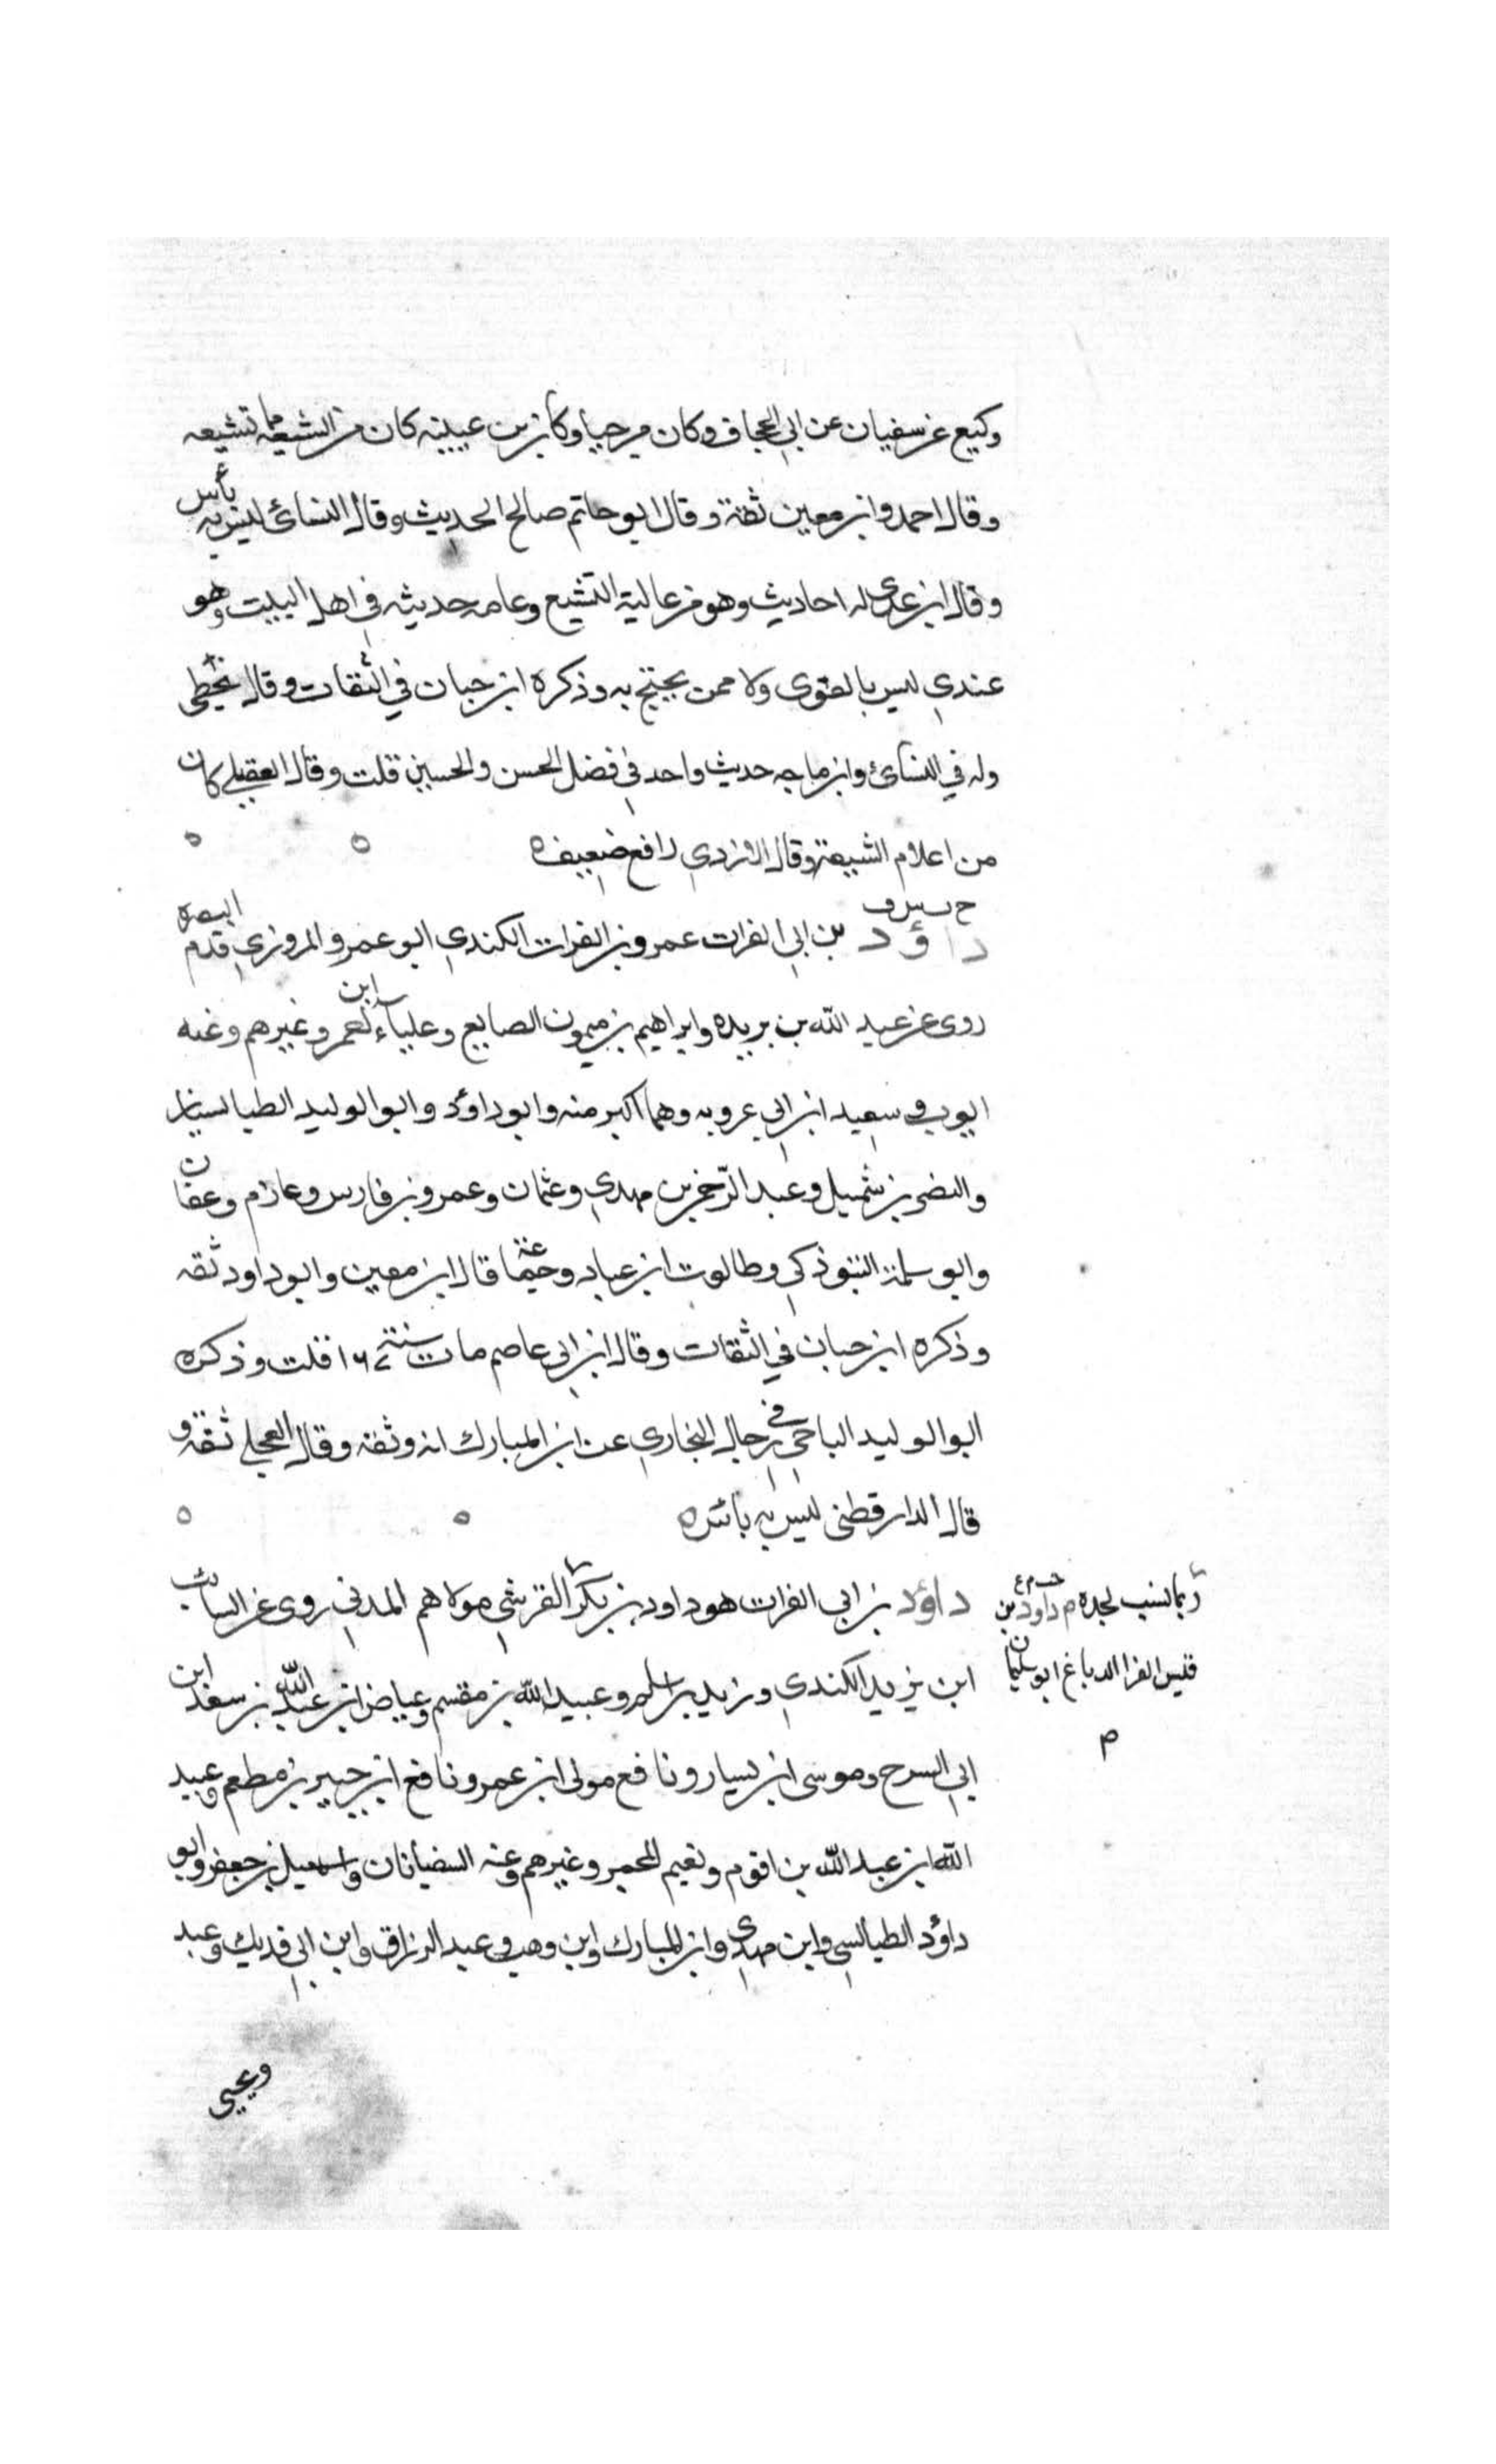 وكيع عن سفيان عن ابي الجحاف وكان مرجيا وكان ابن عيينه كان من الشيعة تشيعه
وقال احمد وابن معين ثقة وقال ابو حاتم صالح الحديث وقال النسائ ليس به بأس
وقال ابن عدي له احاديث وهو من عالية التشيع وعامه حديثه في اهل البيت وهو
عندي ليس بالقوى ولا ممن يحتج به وذكره ابن حبان في الثقات وقال يخطى
وله في النسائ وابن ماجه حديث واحد في فضل الحسن والحسين قلت وقال العقيلي كان
من اعلام الشيعة وقال الازدي ضعيف ه
داؤد بن ابي الفرات عمرو بن الفرات الكندي ابو عمرو المروزي قدم البصره
روى عن عبد الله بن بريده وابراهيم بن ميمون الصايع وعلباء ابن وغيرهم وعنه
ايوب وسعيد ابن ابي عروبه وهما اكبر منه وابو داؤد وابو الوليد الطيالسيان
والنضر بن شميل وعبد الرحمن بن مهدي وعثمان وعمرو بن فارس وعازم وعفان
وابو سلمة التبوذكي وطالوت ابن عباد وجماعة قال ابن معين وابو داود ثقه
وذكره ابن حبان في الثقات وقال ابن ابي عاصم مات سنة ١٦٧ قلت وذكره
ابو الوليد الباجي في رجال البخاري عن ابن المبارك انه وثقه وقال العجلي ثقه و
قال الدارقطنى ليس به بأس ه
داؤد بن ابي الفرات هو داود بن بكر القرشي مولاهم المدني روى عن السائب
ابن يزيد الكندي وزيد بن اسلم وعبيد الله بن مقسم وعياض ابن عبد الله بن سعد ابن
ابي السرح وموسى ابن يسار ونافع مولى ابن عمر ونافع ابن جبير بن مطعم وعبيد
الله ابن عبد الله بن اقرم ونعيم المجمر وغيرهم وعنه السفيانان واسمعيل بن جعفر وابو
داؤد الطيالسي وابن مهدي وابن المبارك وابن وهب وعبد الرزاق وابن ابي فديك وعبد
ربما نسب لجده م داود بن
قيس الفرا الدباغ ابو سليمان
م
ويحيى